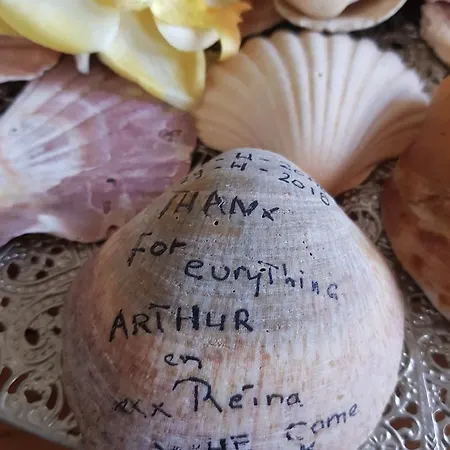 -4-2010
THANx
For
eurything
ARTHUR
en
xxx Reina
come